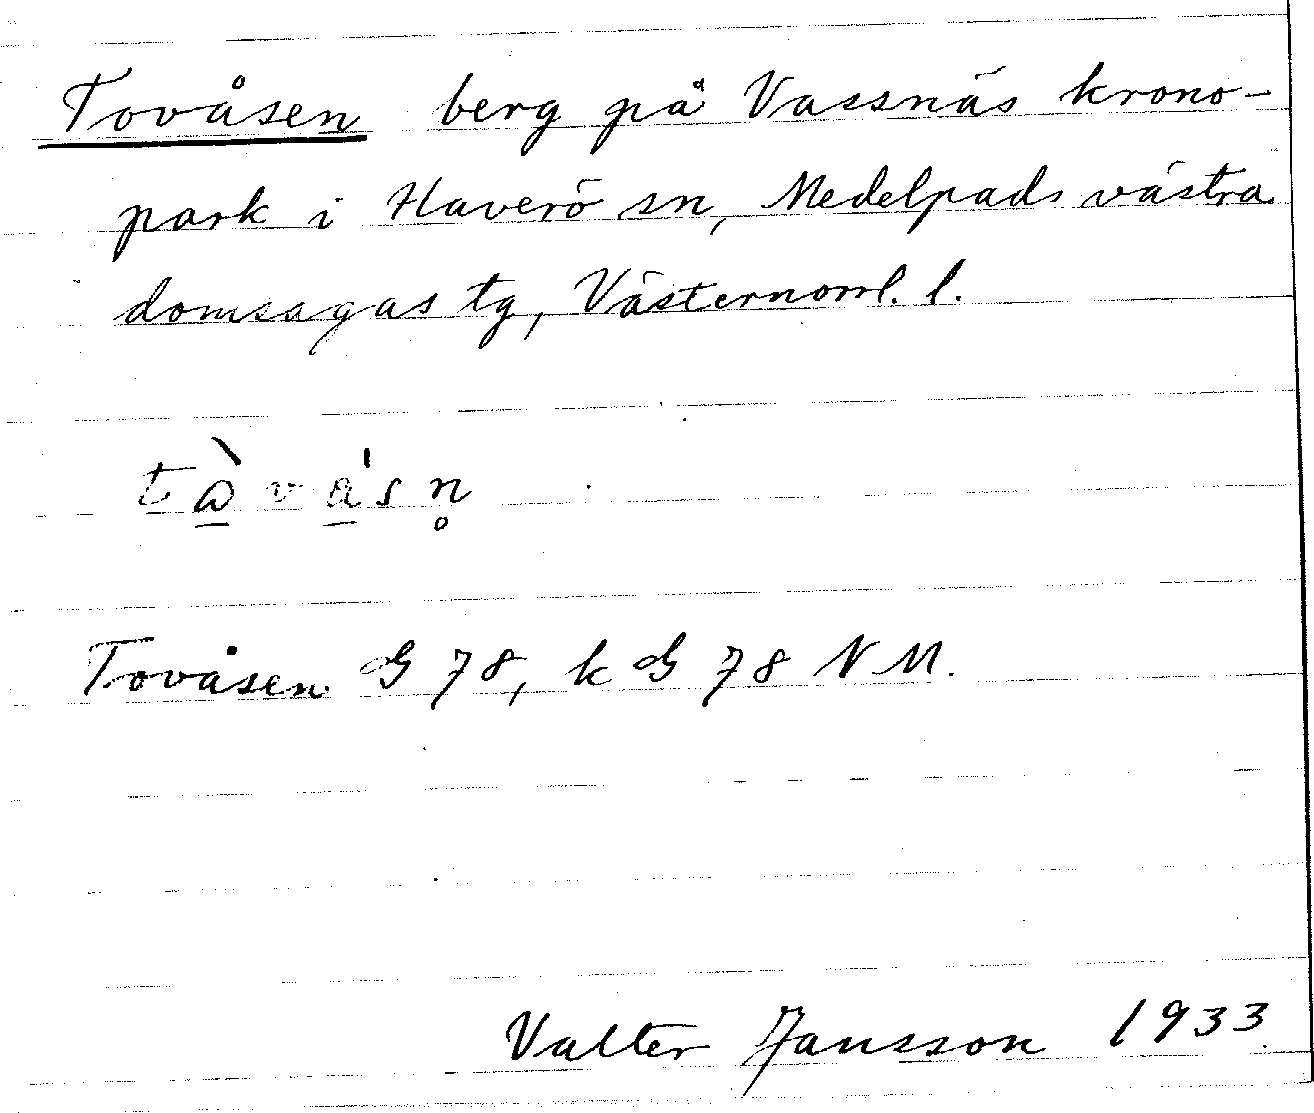 Tovåsen berg på Vassnäs krono-
park i Haverö sn, Medelpads västra
domsagas tg, Västernorrl. l.
tòvåsn̥
Tovåsen G 78, k G 78 NM.
Valter Jansson 1933.